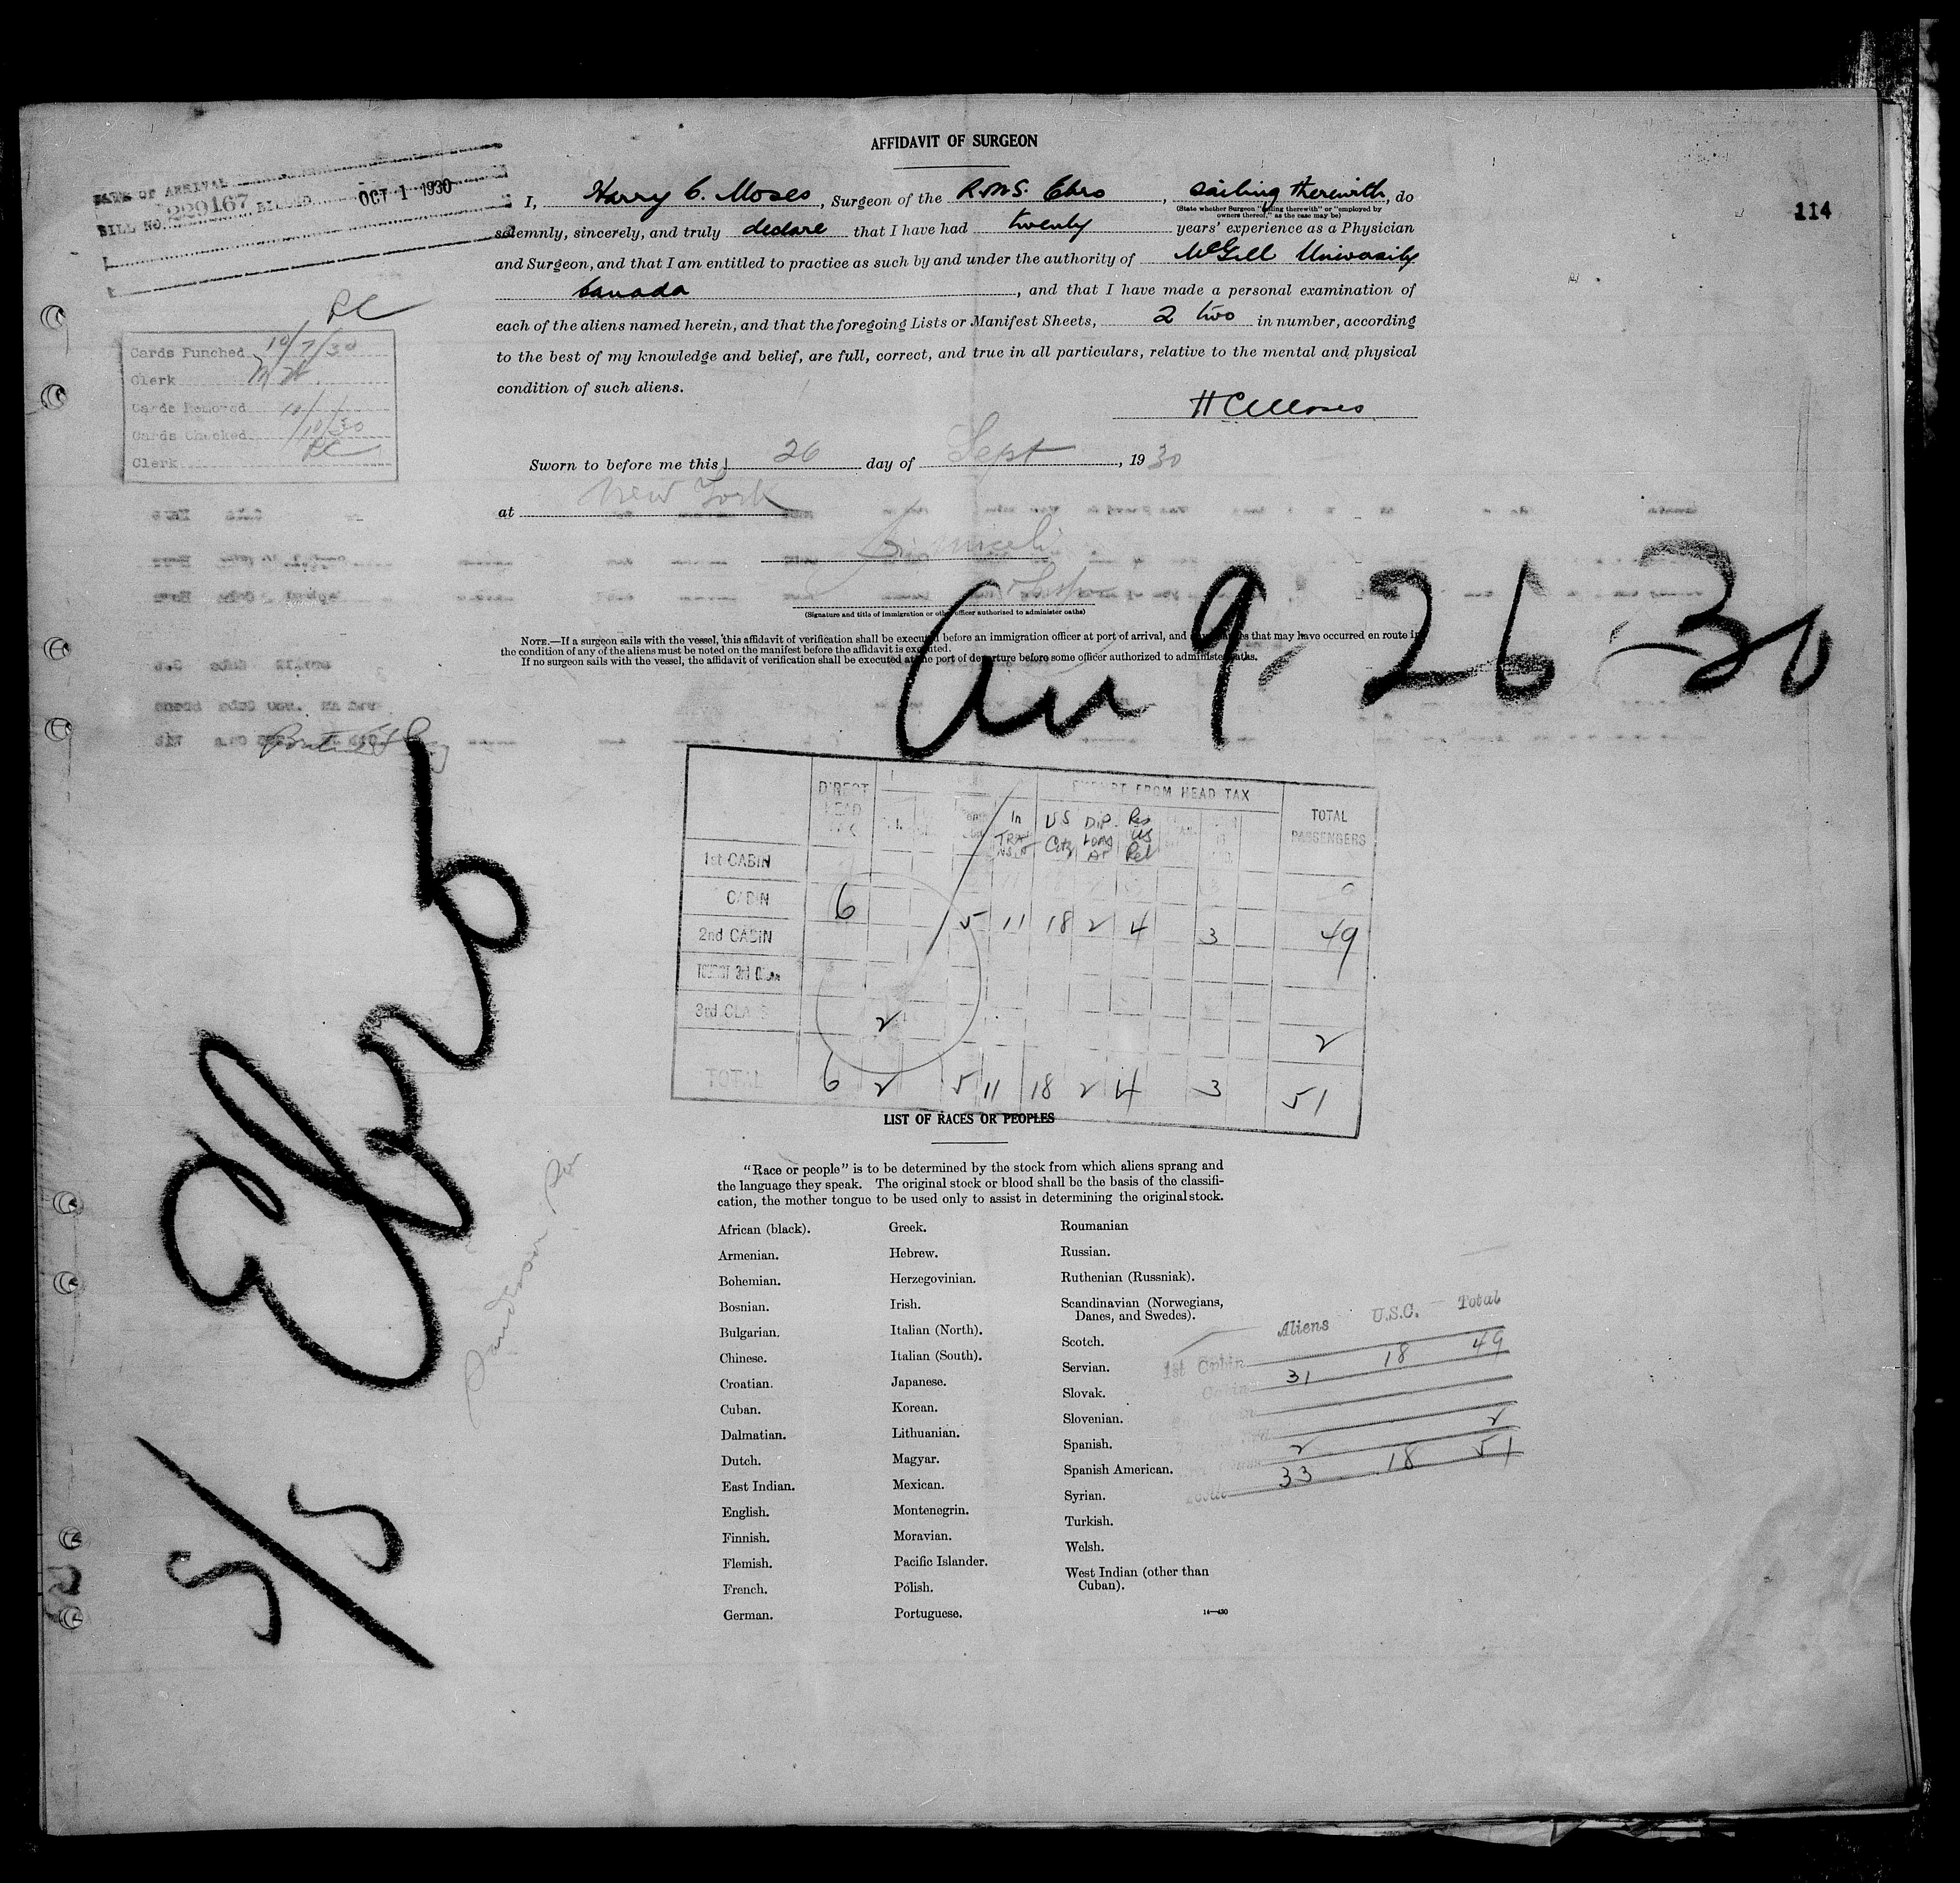 AFFIDAVIT OF SURGEON
DATE OF ARRIVAL
BILL NO. 229167 BILLED OCT 1 1930
114
I, Harry C. Moses, Surgeon of the R.M.S. Ebro, sailing therewith, do
(State whether Surgeon "sailing therewith" or "employed by owners thereof," as the case may be)
solemnly, sincerely, and truly declare that I have had twenty years' experience as a Physician
and Surgeon, and that I am entitled to practice as such by and under the authority of McGill University
Canada, and that I have made a personal examination of
each of the aliens named herein, and that the foregoing Lists or Manifest Sheets, 2 two in number, according
to the best of my knowledge and belief, are full, correct, and true in all particulars, relative to the mental and physical
condition of such aliens.
HC Moses
Sworn to before me this 26 day of Sept, 1930
at New York
(Signature and title of immigration or other officer authorized to administer oaths)
NOTE.—If a surgeon sails with the vessel, this affidavit of verification shall be executed before an immigration officer at port of arrival, and any changes that may have occurred en route in
the condition of any of the aliens must be noted on the manifest before the affidavit is executed.
If no surgeon sails with the vessel, the affidavit of verification shall be executed at the port of departure before some officer authorized to administer oaths.
Cards Punched 10/7/30
Clerk
Cards Removed
Cards Checked 10/10/30
Clerk
9-26-30
S/S Ebro
DIRECT HEAD TAX
In TRANSIT
EXEMPT FROM HEAD TAX
US Citz
DIPLOMAT
Res US Rel
TOTAL PASSENGERS
1st CABIN
CABIN 6 5 11 18 2 4 3 49
2nd CABIN
TOURIST 3rd CLASS
3rd CLASS 2 2
TOTAL 6 2 5 11 18 2 4 3 51
LIST OF RACES OR PEOPLES
"Race or people" is to be determined by the stock from which aliens sprang and
the language they speak. The original stock or blood shall be the basis of the classifi-
cation, the mother tongue to be used only to assist in determining the original stock.
African (black).
Armenian.
Bohemian.
Bosnian.
Bulgarian.
Chinese.
Croatian.
Cuban.
Dalmatian.
Dutch.
East Indian.
English.
Finnish.
Flemish.
French.
German.
Greek.
Hebrew.
Herzegovinian.
Irish.
Italian (North).
Italian (South).
Japanese.
Korean.
Lithuanian.
Magyar.
Mexican.
Montenegrin.
Moravian.
Pacific Islander.
Polish.
Portuguese.
Roumanian
Russian.
Ruthenian (Russniak).
Scandinavian (Norwegians,
Danes, and Swedes).
Scotch.
Servian.
Slovak.
Slovenian.
Spanish.
Spanish American.
Syrian.
Turkish.
Welsh.
West Indian (other than
Cuban).
14—430
Aliens U.S.C. Total
1st Cabin 31 18 49
Cabin
2 2
33 18 51